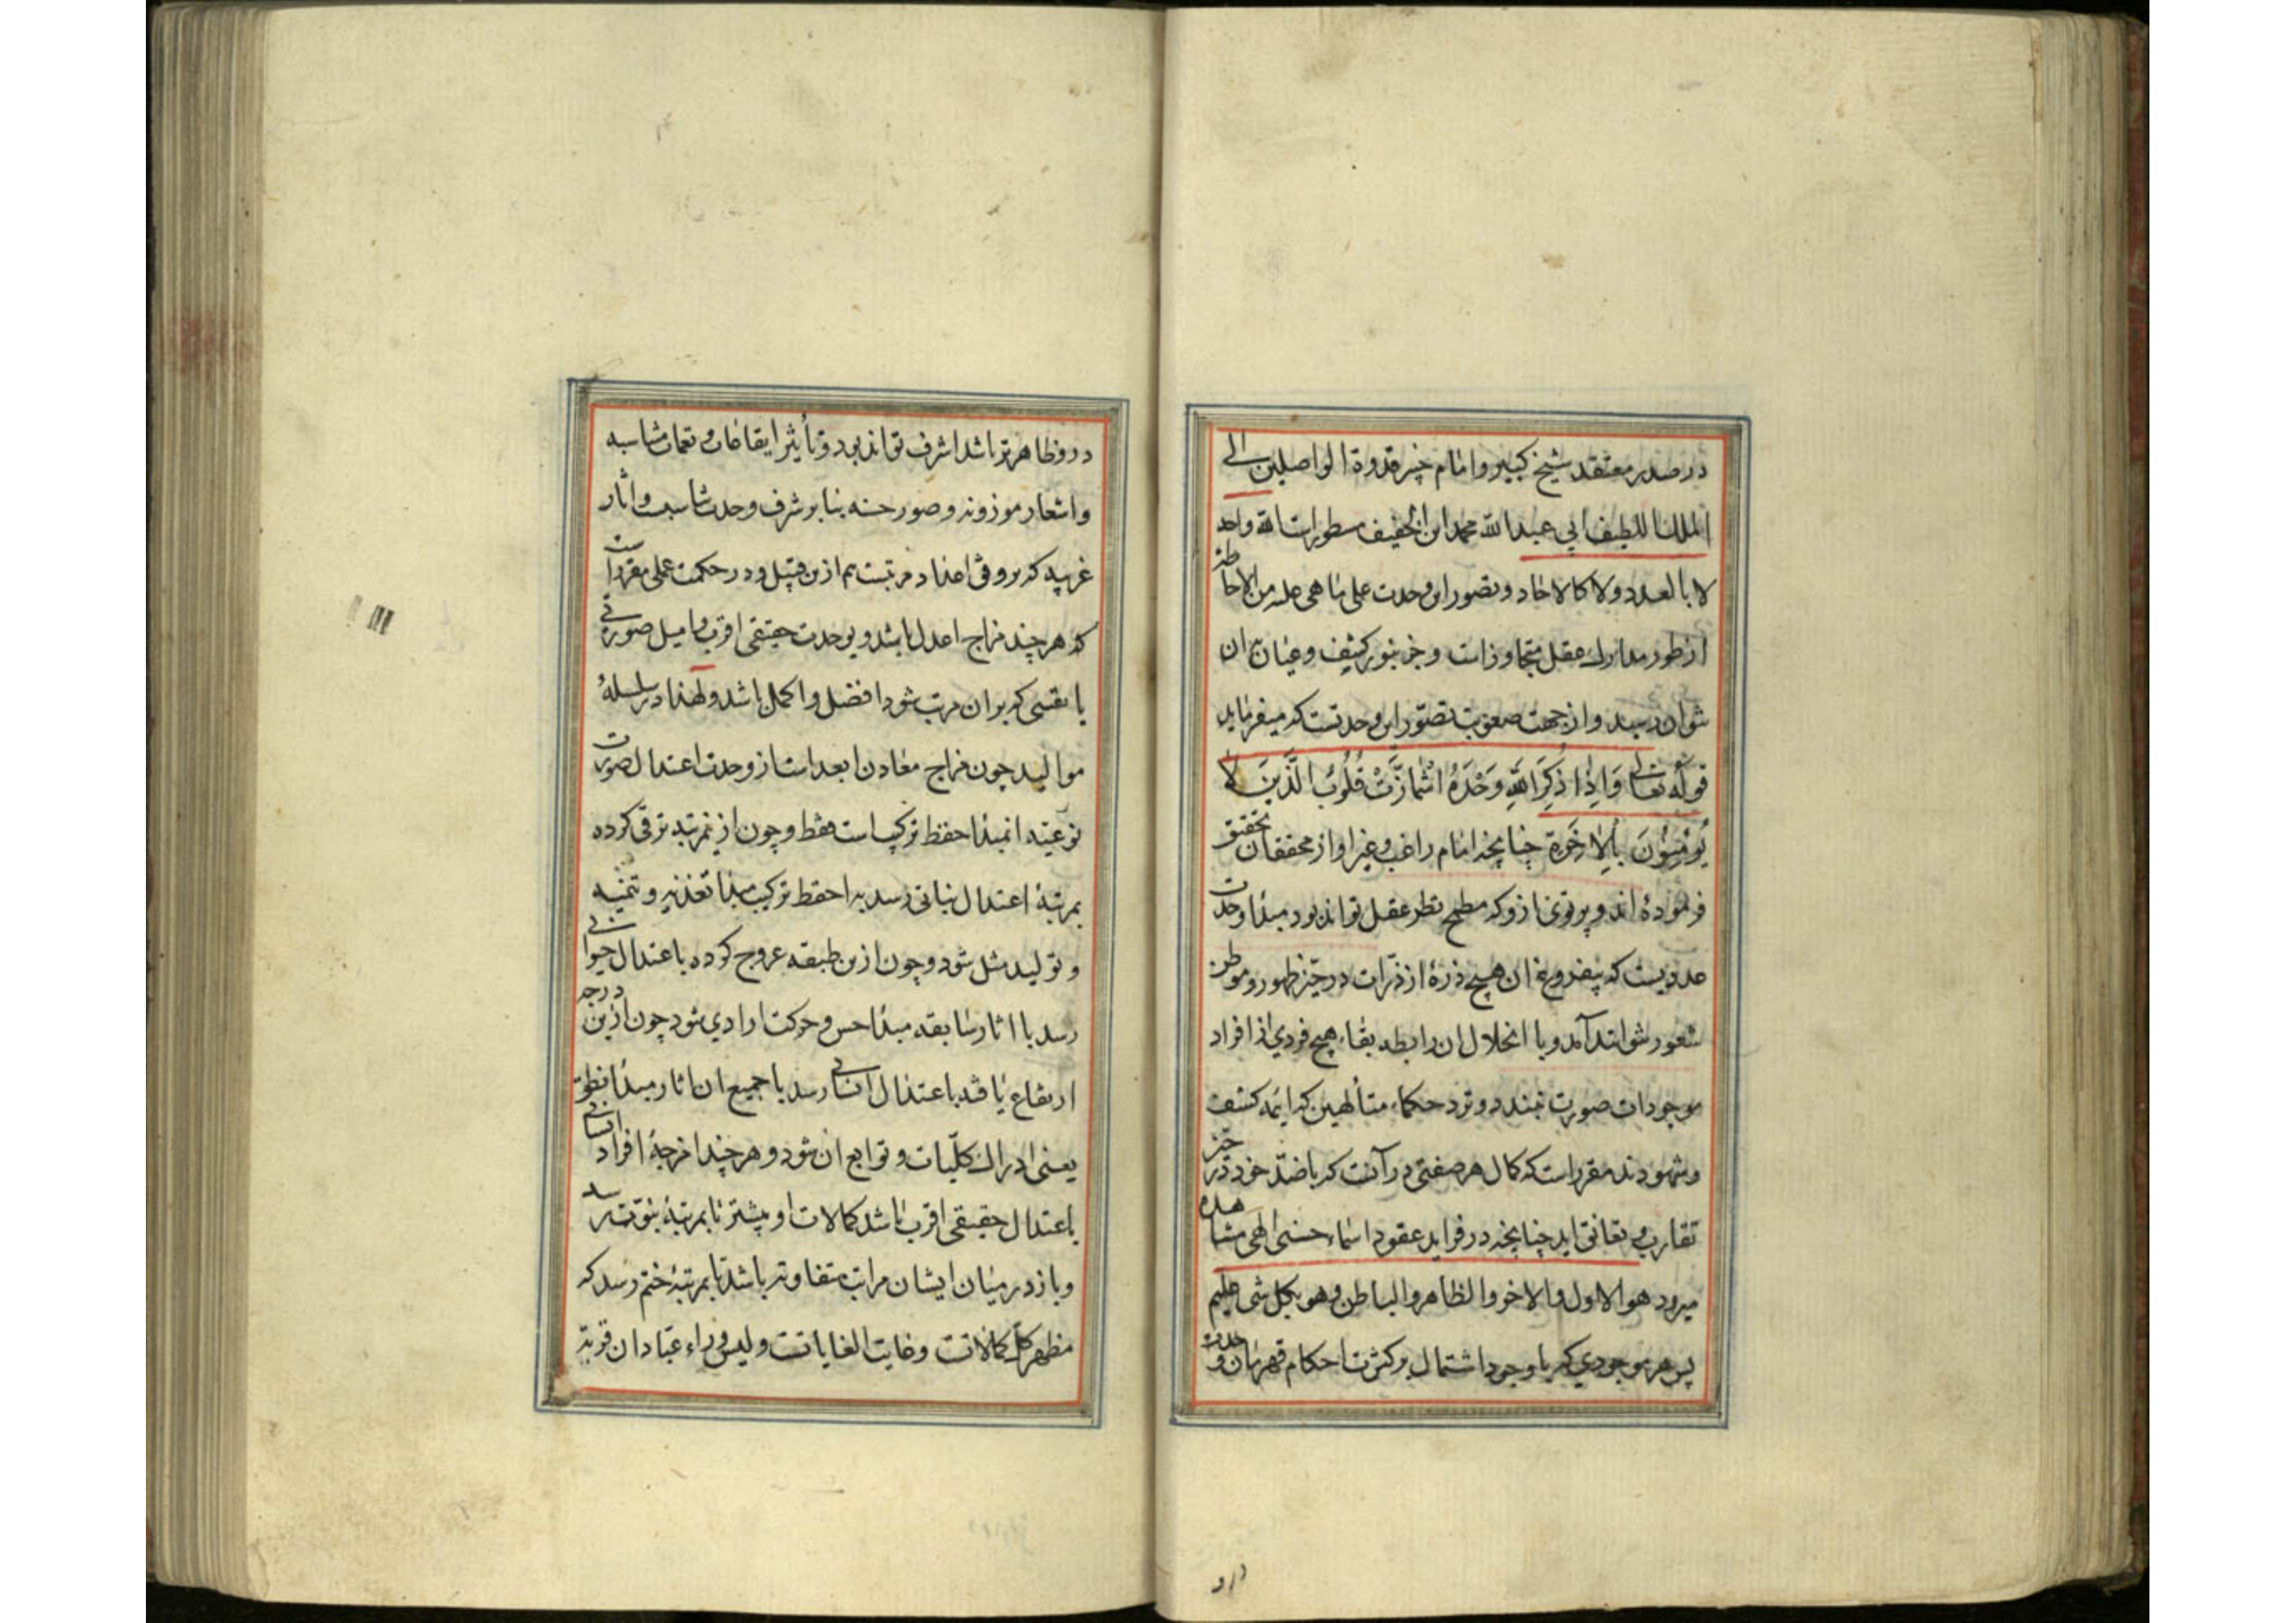 در صدر معتقد شیخ کبیر وامام خبیر قدوة الواصلین الی
الملك اللطیف ابی عبدالله محمد ابن الخفیف مسطور است الله واحد
لا بالعدد ولا کالاحاد وتصور این وحدت علی ما هی علیه من الاحاطة
از طور مدارك عقل متجاوز است وجز بنور کشف وعیان بآن
نتوان رسید واز جهت صعوبت تصور این وحدتست که میفرماید
قوله تعالی وَاِذَا ذُكِرَ اللهُ وَحْدَهُ اشْمَأزَّتْ قُلُوبُ الَّذِينَ لَا
يُؤْمِنُونَ بِالْاٰخِرَةِ چنانچه امام راغب وغیر او از محققان تحقیق
فرموده اند وپرتوی ازو که مطمح نظر عقل تواند بود مبدا وحدت
عددیست که بیفروغ ان هیچ ذرهٔ از ذرات در حیز ظهور وموطن
شعور نتواند آمد وبا انحلال ان رابطه بقاء هیچ فردی از افراد
موجودات صورت نبندد ونزد حکماء متألهین که ائمه کشف
وشهودند مقرر است که کمال هر صفتی در آنست که با ضد خود در حیز
تقارب وتعانق اید چنانچه در فراید عقود اسماء حسنی الهی مشاهده
میرود هو الاول والاخر والظاهر والباطن وهو بکل شی علیم
پس هر موجودی که با وجود اشتمال بر کثرت احکام قهرمان وحدت
درو
درو ظاهرتر باشد اشرف تواند بود وتأثیر ایقاعات ونغمات متناسبه
واشعار موزونه وصور حسنه بنابر شرف وحدت تناسبست واثار
غریبه که بر وفق اعداد مرتبست هم ازین قبیل ودر حکمت علی مقررست
که هر چند مزاج اعدل باشد وبوحدت حقیقی اقرب وامیل صورتی
یا نفسی که بران مرتب شود افضل واکمل باشد ولهذا در سلسلهٔ
موالید چون مزاج معادن ابعد است از وحدت اعتدال صورت
نوعیه انمبدا حفظ ترکیب است فقط وچون ازینمرتبه ترقی کرده
بمرتبهٔ اعتدال نباتی رسد با حفظ ترکیب مبدا تغذیه وتنمیه
وتولید مثل شود وچون ازین طبقه عروج کرده باعتدال حیوانی
رسد با اثار سابقه مبدا حس وحرکت ارادی شود چون ازین درجه
ارتقاع یافته باعتدال انسانی رسد با جمیع ان اثار مبدا نطق
یعنی ادراك کلّیات وتوابع ان شود وهر چند امزجهٔ افراد انسانی
باعتدال حقیقی اقرب باشد کمالات او بیشتر تا بمرتبهٔ نبوت رسد
وباز در میان ایشان مراتب متفاوته باشد تا بمرتبهٔ ختم رسد که
مظهر کل کمالاتست وغایت الغایاتست ولیس وراء عبادان قریة